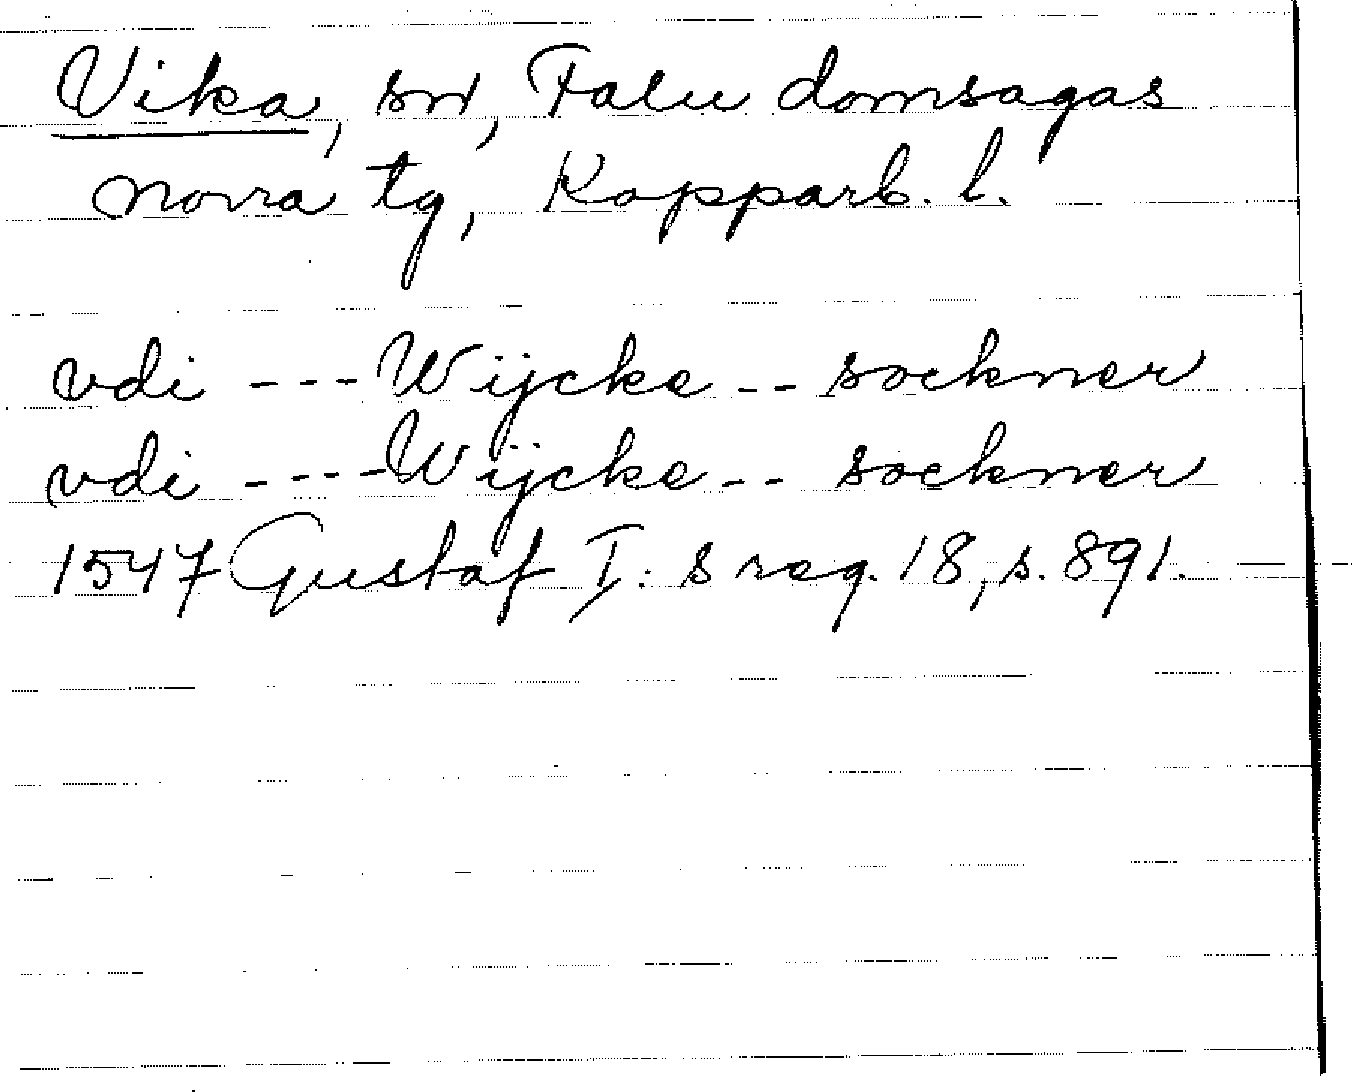 Vika, sn, Falu domsagas
norra tg, Kopparb. l.
vdi --- Wijcke -- sockner
vdi ---- Wijcke -- sockner
1547 Gustaf I:s reg. 18, s. 891.